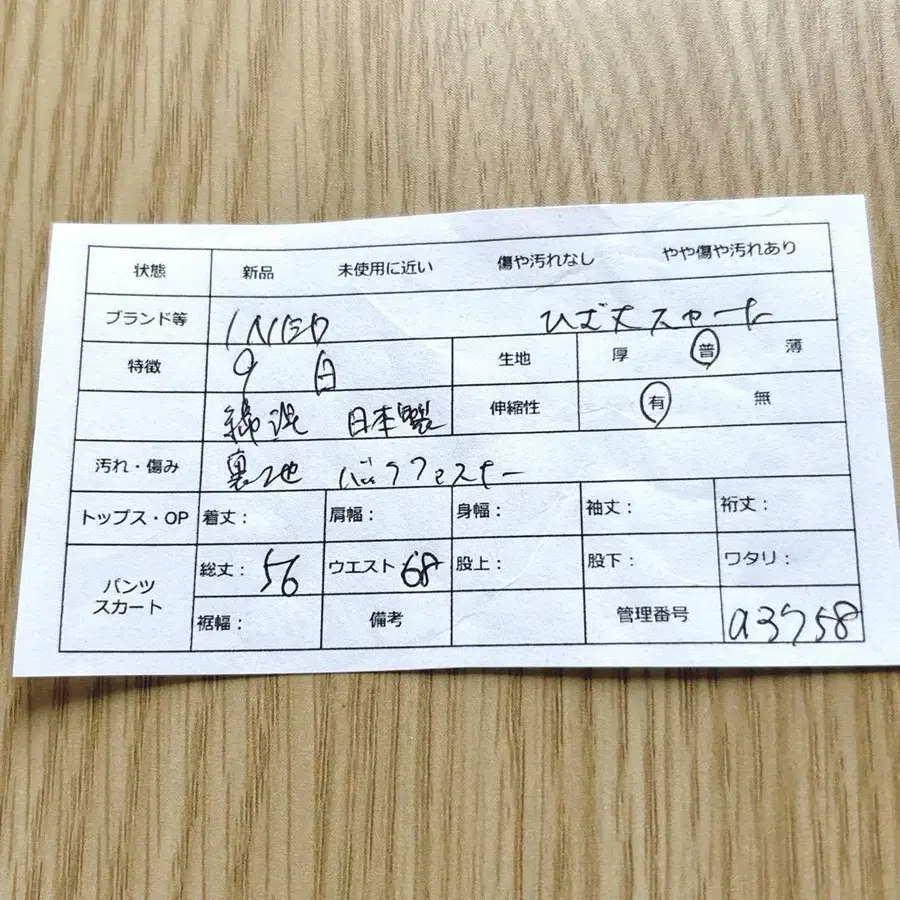 状態 新品 未使用に近い 傷や汚れなし やや傷や汚れあり
ブランド等 INED ひざ丈スカート
特徴 9 白 生地 厚 普 薄
綿混 日本製 伸縮性 有 無
汚れ・傷み 裏地 バックファスナー
トップス・OP 着丈: 肩幅: 身幅: 袖丈: 裄丈:
パンツ スカート 総丈: 56 ウエスト 68 股上: 股下: ワタリ:
裾幅: 備考 管理番号 a3758